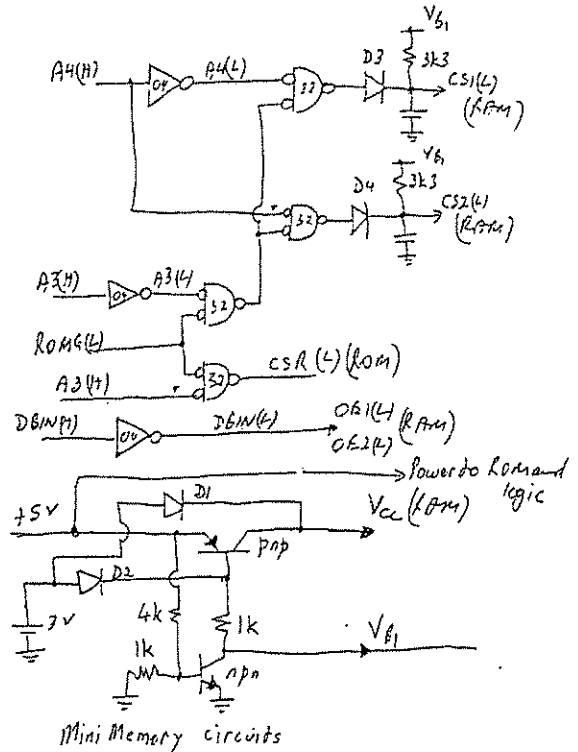 VB1
D3
3k3
A4(H)
04
A4(L)
32
CS1(L)
(RAM)
VB1
3k3
D4
32
CS2(L)
(RAM)
A3(H)
04
A3(L)
32
ROMG(L)
32
CSR(L)(ROM)
A3(H)
DBIN(H)
04
DBIN(L)
OE1(L)
OE2(L)
(RAM)
Power to ROM and
logic
+5V
D1
VCC (RAM)
pnp
D2
3V
4k
1k
1k
npn
VB1
Mini Memory circuits